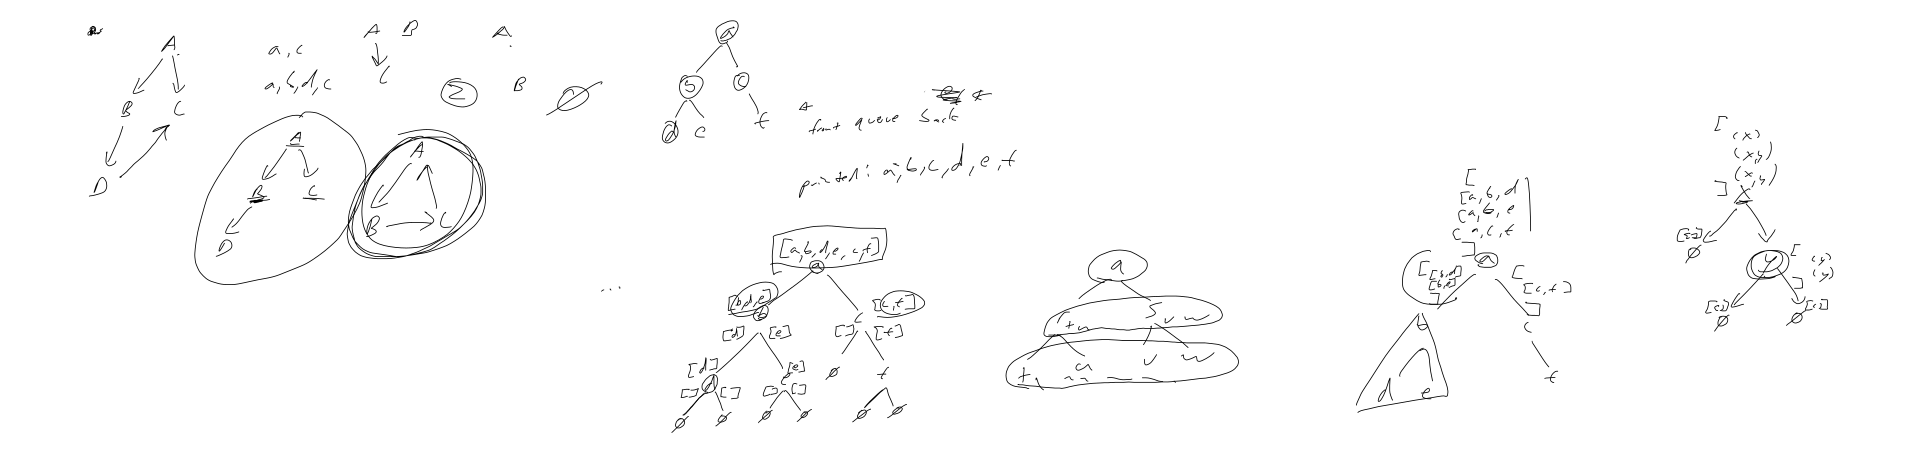 A
B
C
D
a,c
a,b,d,c
A
B
C
A
B
C
D
A
B
C
2
A
B
a
b
c
d
e
f
front queue back
printed: a,b,c,d,e,f
...
[a,b,d,e,c,f]
a
[b,d,e]
[c,f]
b
c
[d]
[e]
[]
[f]
[d]
[e]
d
e
∅
f
[]
[]
[]
[]
∅
∅
∅
∅
∅
∅
a
[
[a,b,d
[a,b,e
[a,c,f
]
a
[
[b,d]
[b,e]
]
[
[c,f]
]
b
c
d
e
f
[
(x)
(x,y)
(x,y)
]
x
[[]]
∅
y
[
(y)
(y)
]
[[]]
[[]]
∅
∅